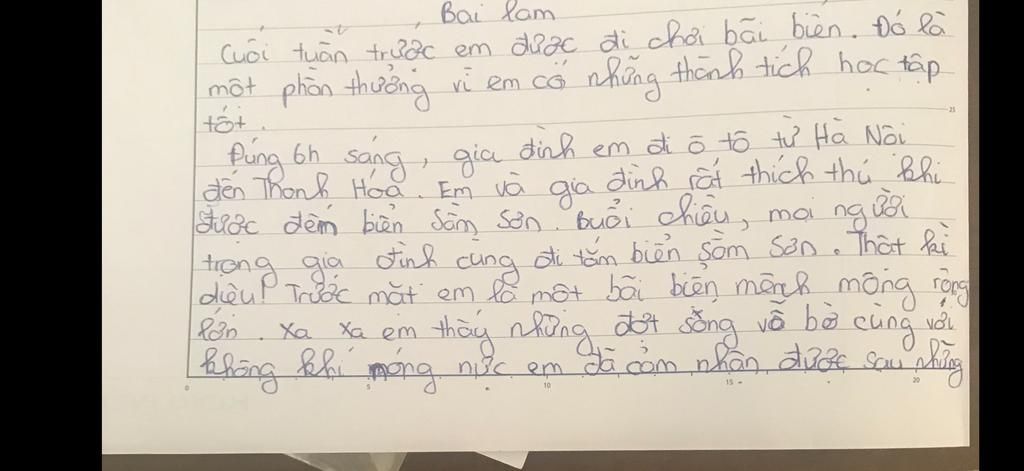 Bài làm
Cuối tuần trước em được đi chơi bãi biển. Đó là
một phần thưởng vì em có những thành tích học tập
tốt.
Đúng 6h sáng, gia đình em đi ô tô từ Hà Nội
đến Thanh Hóa. Em và gia đình rất thích thú khi
được đếm biển Sầm Sơn. Buổi chiều, mọi người
trong gia đình cùng đi tắm biển Sầm Sơn. Thật kì
diệu! Trước mắt em là một bãi biển mênh mông rộng
lớn. Xa xa em thấy những đợt sóng vỗ bờ cùng với
không khí nóng nực em đã cảm nhận được sau những
0 5 10 15 20
25